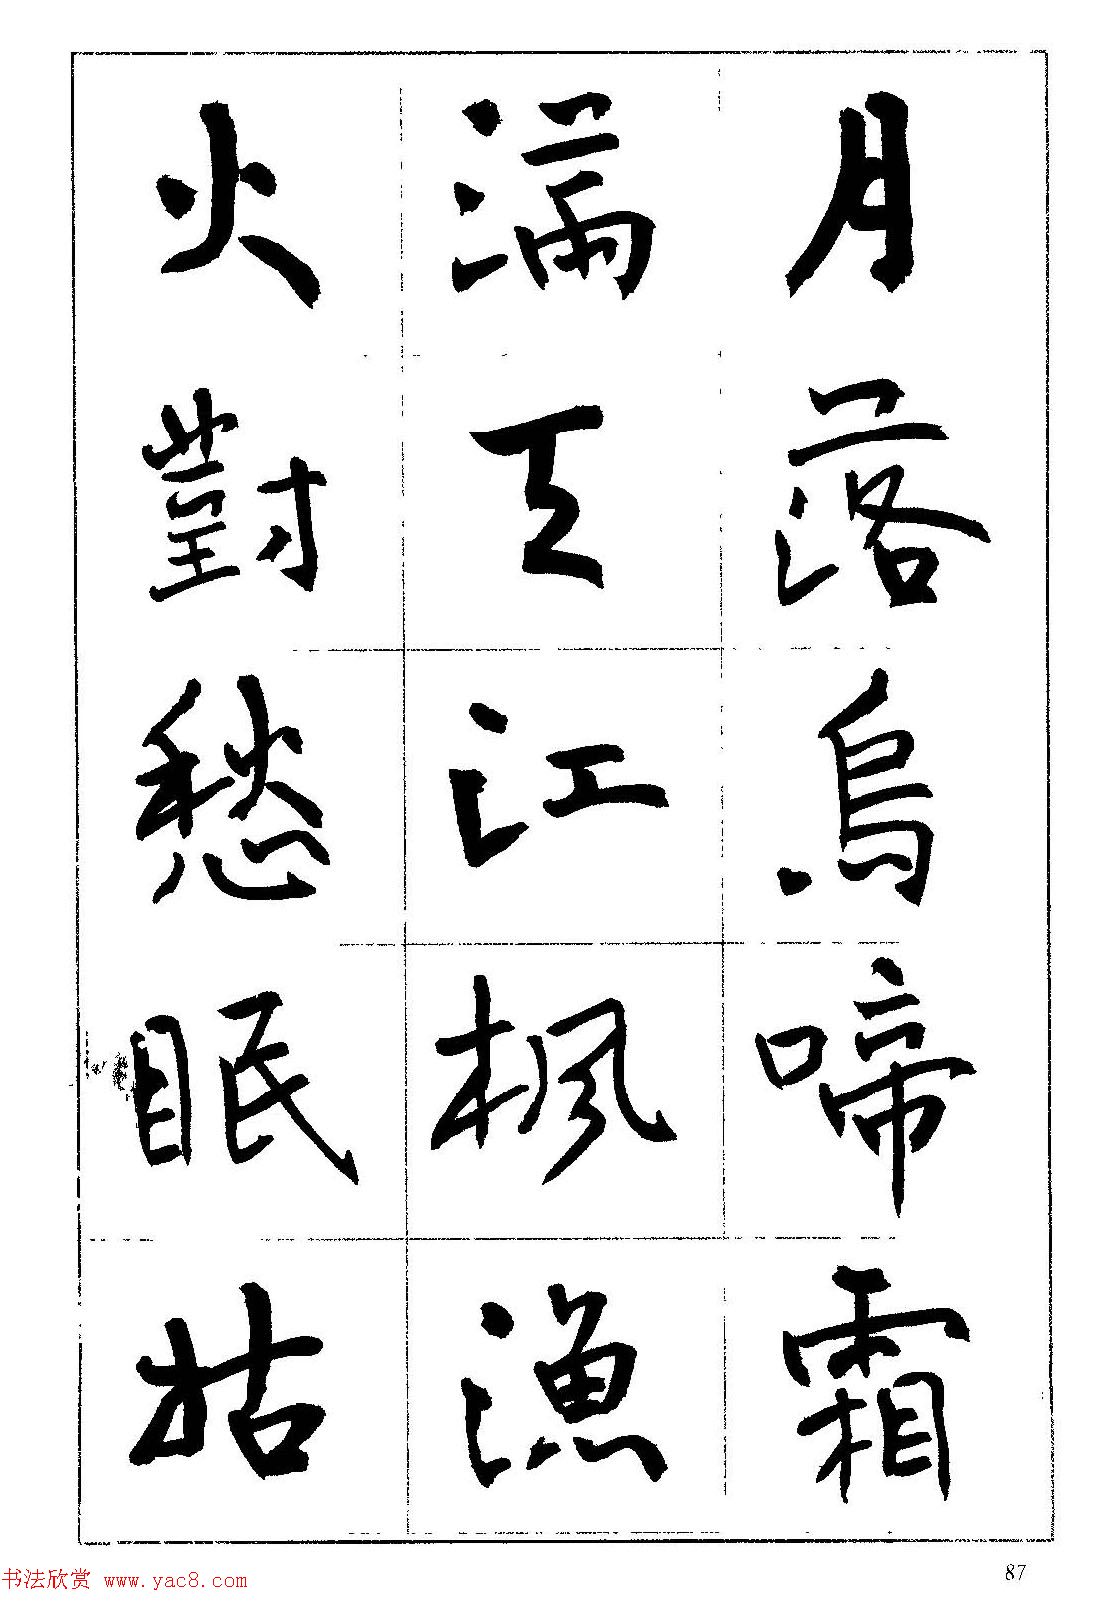 月落烏啼霜
满天江枫渔
火對愁眠姑
87
书法欣赏 www.yac8.com